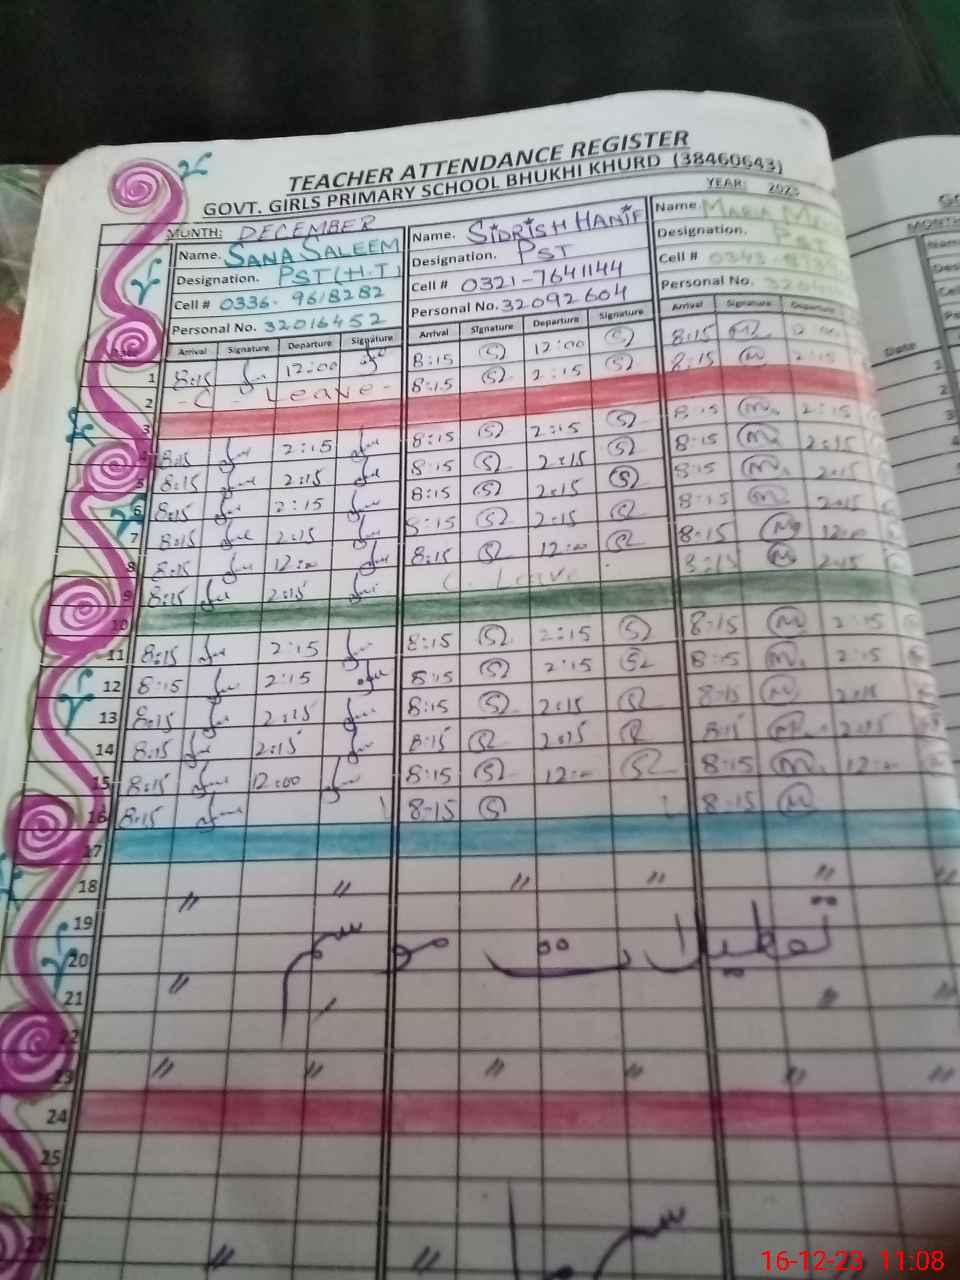 TEACHER ATTENDANCE REGISTER
GOVT. GIRLS PRIMARY SCHOOL BHUKHI KHURD (38460643)
MONTH: DECEMBER YEAR: 2023
Name. SANA SALEEM Name. SIDRISH HANIF Name. MARIA
Designation. PST (H.T) Designation. PST Designation.
Cell # 0336-9618282 Cell # 0321-7641144 Cell # 0343
Personal No. 32016452 Personal No. 32092604 Personal No.
Arrival Signature Departure Signature Arrival Signature Departure Signature Arrival Signature Departure
1 8:15 12:00 8:15 S 12:00 S 8:15 M
2 - C - Leave - 8:15 S 2:15 S 8:15 M 2:15
3
4 8:15 2:15 8:15 S 2:15 S 8:15 M 2:15
5 8:15 2:15 8:15 S 2:15 S 8:15 M 2:15
6 8:15 2:15 8:15 S 2:15 S 8:15 M 2:15
7 8:15 2:15 8:15 S 2:15 S 8:15 M 2:15
8 8:15 12:00 8:15 S 12:00 S 8:15 M 12:00
9 8:15 2:15 C. Leave 8:15 M 2:15
10
11 8:15 2:15 8:15 S 2:15 S 8:15 M 2:15
12 8:15 2:15 8:15 S 2:15 S 8:15 M 2:15
13 8:15 2:15 8:15 S 2:15 S 8:15 M 2:15
14 8:15 2:15 8:15 S 2:15 S 8:15 M 2:15
15 8:15 12:00 8:15 S 12:00 S 8:15 M 12:00
16 8:15 8:15 S 8:15 M
17
18 〃 〃 〃 〃 〃
19 〃
20 تعطیلات موسم
21 〃 〃 〃
22
23 〃 〃 〃 〃 〃 〃
24
25
26
27 〃 〃
Date
1
2
3
16-12-23 11:08